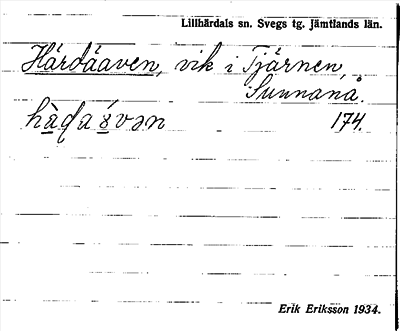 Lillhärdals sn. Svegs tg. Jämtlands län.
Härdåaven, vik i Tjärnen,
Sunnanå.
174.
Erik Eriksson 1934.